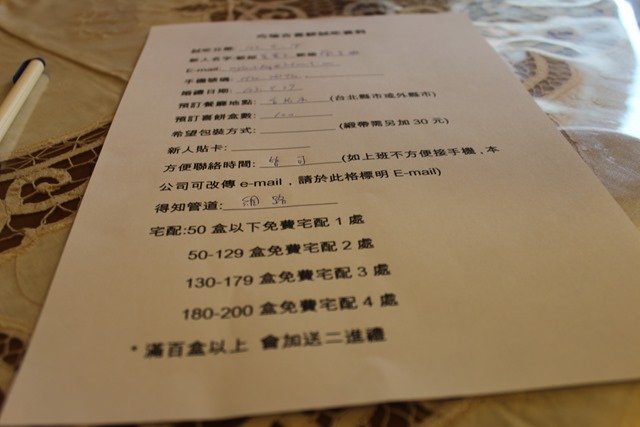 試吃日期:
新人名字:新郎 新娘
E-mail:
手機號碼:
婚禮日期:
預訂餐廳地點: (台北縣市或外縣市)
預訂喜餅盒數:
希望包裝方式: (緞帶需另加 30 元)
新人貼卡:
方便聯絡時間: 皆可 (如上班不方便接手機,本
公司可改傳 e-mail,請於此格標明 E-mail)
得知管道: 網路
宅配:50 盒以下免費宅配 1 處
50-129 盒免費宅配 2 處
130-179 盒免費宅配 3 處
180-200 盒免費宅配 4 處
*滿百盒以上 會加送二進禮